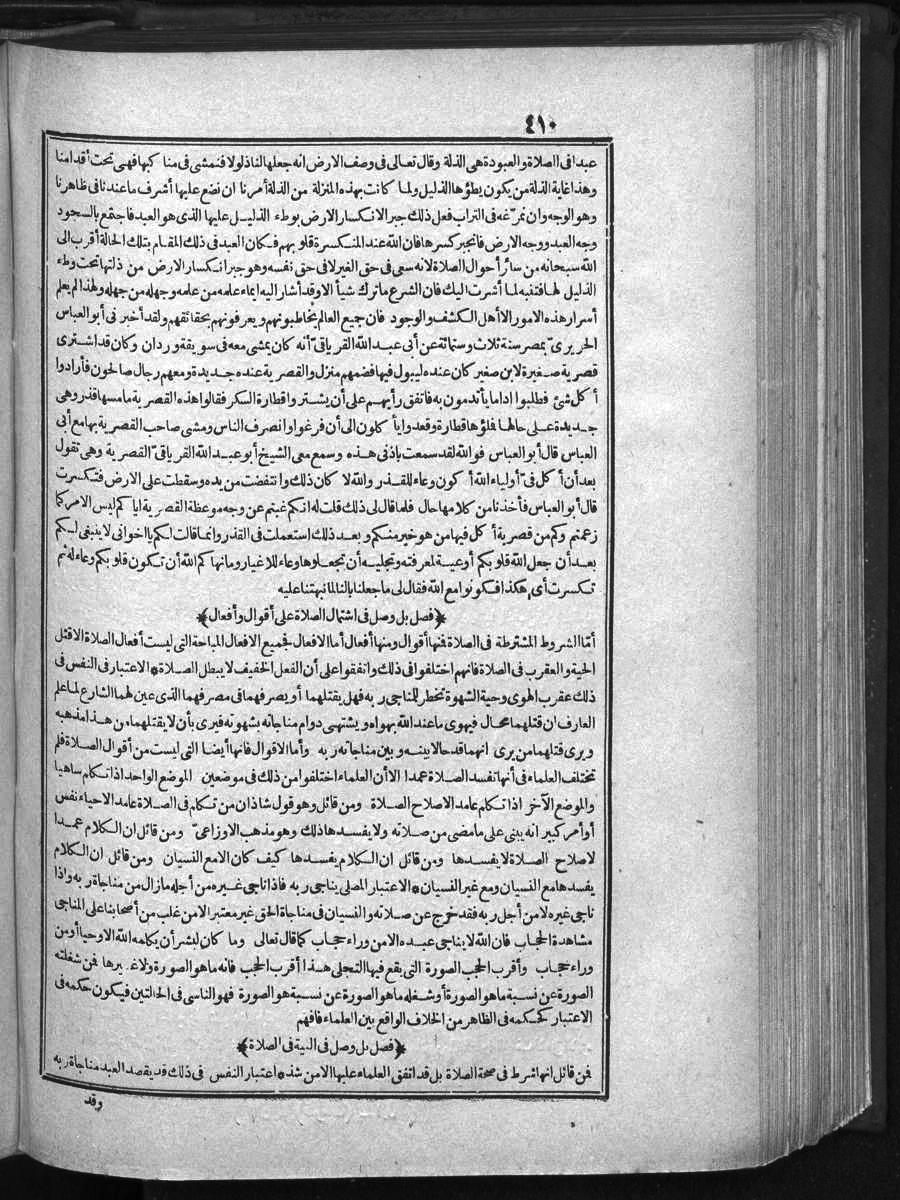 ٤١٠
عبدا في الصلاة والعبودة هي الذلة وقال تعالى في وصف الارض انه جعلها لنا ذلولا فنمشى في منا كبها فهى تحت أقدامنا
وهذا غاية الذلة من يكون يطؤها الذليل ولما كانت بهذه المنزلة من الذلة أمرنا ان نضع عليها أشرف ما عندنا في ظاهرنا
وهو الوجه وان نمرّغه في التراب فعل ذلك جبرا لانكسار الارض بوطء الذليل عليها الذى هو العبد فاجتمع بالسجود
وجه العبد ووجه الارض فانجبر كسرها فان الله عند المنكسرة قلوبهم فكان العبد في ذلك المقام بتلك الحالة أقرب الى
الله سبحانه من سائر أحوال الصلاة لانه سعى في حق الغير لا في حق نفسه وهو جبر انكسار الارض من ذلتها تحت وطء
الذليل لها فتنبه لما أشرت اليك فان الشرع ما ترك شيأ الا وقد أشار اليه ايماء علمه من علمه وجهله من جهله ولهذا لم يعلم
أسرار هذه الامور الا أهل الكشف والوجود فان جميع العالم يخاطبونهم ويعرفونهم بحقائقهم ولقد أخبرنى أبو العباس
الحريرىّ بمصر سنة ثلاث وستمائة عن أبى عبد الله القرباقىّ أنه كان يمشى معه فى سويقة وردان وكان قد اشترى
قصرية صغيرة لابن صغير كان عنده ليبول فيها فضمهم منزل والقصرية عنده جديدة ومعهم رجال صالحون فأرادوا
أكل شئ فطلبوا اداما يأتدمون به فاتفق رأيهم على أن يشتروا قطارة السكر فقالوا هذه القصرية ما مسها قذر وهى
جديدة على حالها فملؤها قطارة وقعدوا يأكلون الى أن فرغوا وانصرف الناس ومشى صاحب القصرية بها مع أبى
العباس قال أبو العباس فوالله لقد سمعت باذنى هذه وسمع معى الشيخ أبو عبد الله القرباقىّ القصرية وهى تقول
بعد أن أكل فىّ أولياء الله أكون وعاء للقذر والله لا كان ذلك وانتفضت من يده وسقطت على الارض فتكسرت
قال أبو العباس فأخذنا من كلامها حال فلما قال لى ذلك قلت له انكم غبتم عن وجه موعظة القصرية ايا كم ليس الامر كما
زعمتم وكم من قصرية أكل فيها من هو خير منكم وبعد ذلك استعملت فى القذر وانما قالت لكم يا اخوانى لا ينبغى لكم
بعد أن جعل الله قلوبكم أوعية لمعرفته وتجليه أن تجعلوها وعاء للاغيار وما نهاكم الله أن تكون قلوبكم وعاء له ثم
تكسرت أى هكذا فكونوا مع الله فقال لى ما جعلنا بالنا لما نبهتنا عليه
﴿فصل بل وصل فى اشتمال الصلاة على أقوال وأفعال﴾
أمّا الشروط المشترطة فى الصلاة فمنها أقوال ومنها أفعال أما الافعال فجميع الافعال المباحة التى ليست أفعال الصلاة الا قتل
الحية والعقرب فى الصلاة فانهم اختلفوا فى ذلك واتفقوا على أن الفعل الخفيف لا يبطل الصلاة * الاعتبار فى النفس فى
ذلك عقرب الهوى وحية الشهوة تخطر للمناجى ربه فهل يقتلهما أو يصرفهما فى مصرفهما الذى عين لهما الشارع لما علم
العارف ان قتلهما محال فيهوى ما عند الله بهواه ويشتهى دوام مناجاته بشهوته فيرى بأن لا يقتلهما من هذا مذهبه
ويرى قتلهما من يرى انهما قد حالا بينه وبين مناجاته ربه وأما الاقوال فانها أيضا التى ليست من أقوال الصلاة فلم
تختلف العلماء فى أنها تفسد الصلاة عمدا الا أن العلماء اختلفوا من ذلك فى موضعين الموضع الواحد اذا تكلم ساهيا
والموضع الآخر اذا تكلم عامدا لاصلاح الصلاة ومن قائل وهو قول شاذ ان من تكلم فى الصلاة عامدا لاحياء نفس
أو أمر كبير انه يبنى على ما مضى من صلاته ولا يفسدها ذلك وهو مذهب الاوزاعىّ ومن قائل ان الكلام عمدا
لاصلاح الصلاة لا يفسدها ومن قائل ان الكلام يفسدها كيف كان الا مع النسيان ومن قائل ان الكلام
يفسدها مع النسيان ومع غير النسيان * الاعتبار المصلى يناجى ربه فاذا ناجى غيره من أجله ما زال من مناجاة ربه واذا
ناجى غيره لا من أجل ربه فقد خرج عن صلاته والنسيان فى مناجاة الحق غير معتبر الا من غلب من أصحابنا على المناجى
مشاهدة الحجاب فان الله لا يناجى عبده الا من وراء حجاب كما قال تعالى وما كان لبشر أن يكلمه الله الا وحيا أو من
وراء حجاب وأقرب الحجب الصورة التى يقع فيها التجلى هذا أقرب الحجب فانه ما هو الصورة ولا غيرها فمن شغلته
الصورة عن نسبة ما هو الصورة أو شغله ما هو الصورة عن نسبة هو الصورة فهو الناسى فى الحالتين فيكون حكمه فى
الاعتبار كحكمه فى الظاهر من الخلاف الواقع بين العلماء فافهم
﴿فصل بل وصل فى النية فى الصلاة﴾
فمن قائل انها شرط فى صحة الصلاة بل قد اتفق العلماء عليها الا من شذ * اعتبار النفس فى ذلك قد يقصد العبد مناجاة ربه
وقد